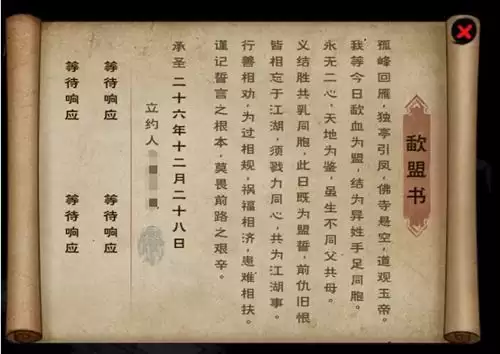 歃盟书
孤峰回雁，独亭引凤，佛寺悬空，道观玉帝。
我等今日歃血为盟，结为异姓手足同胞。
永无二心，天地为鉴，虽生不同父共母。
义结胜共乳同胞，此日既为盟誓，前仇旧恨
皆相忘于江湖，须戮力同心，共为江湖事。
行善相劝，为过相规，祸福相济，患难相扶。
谨记誓言之根本，莫畏前路之艰辛。
承圣二十六年十二月二十八日
立约人
等待响应
等待响应
等待响应
等待响应